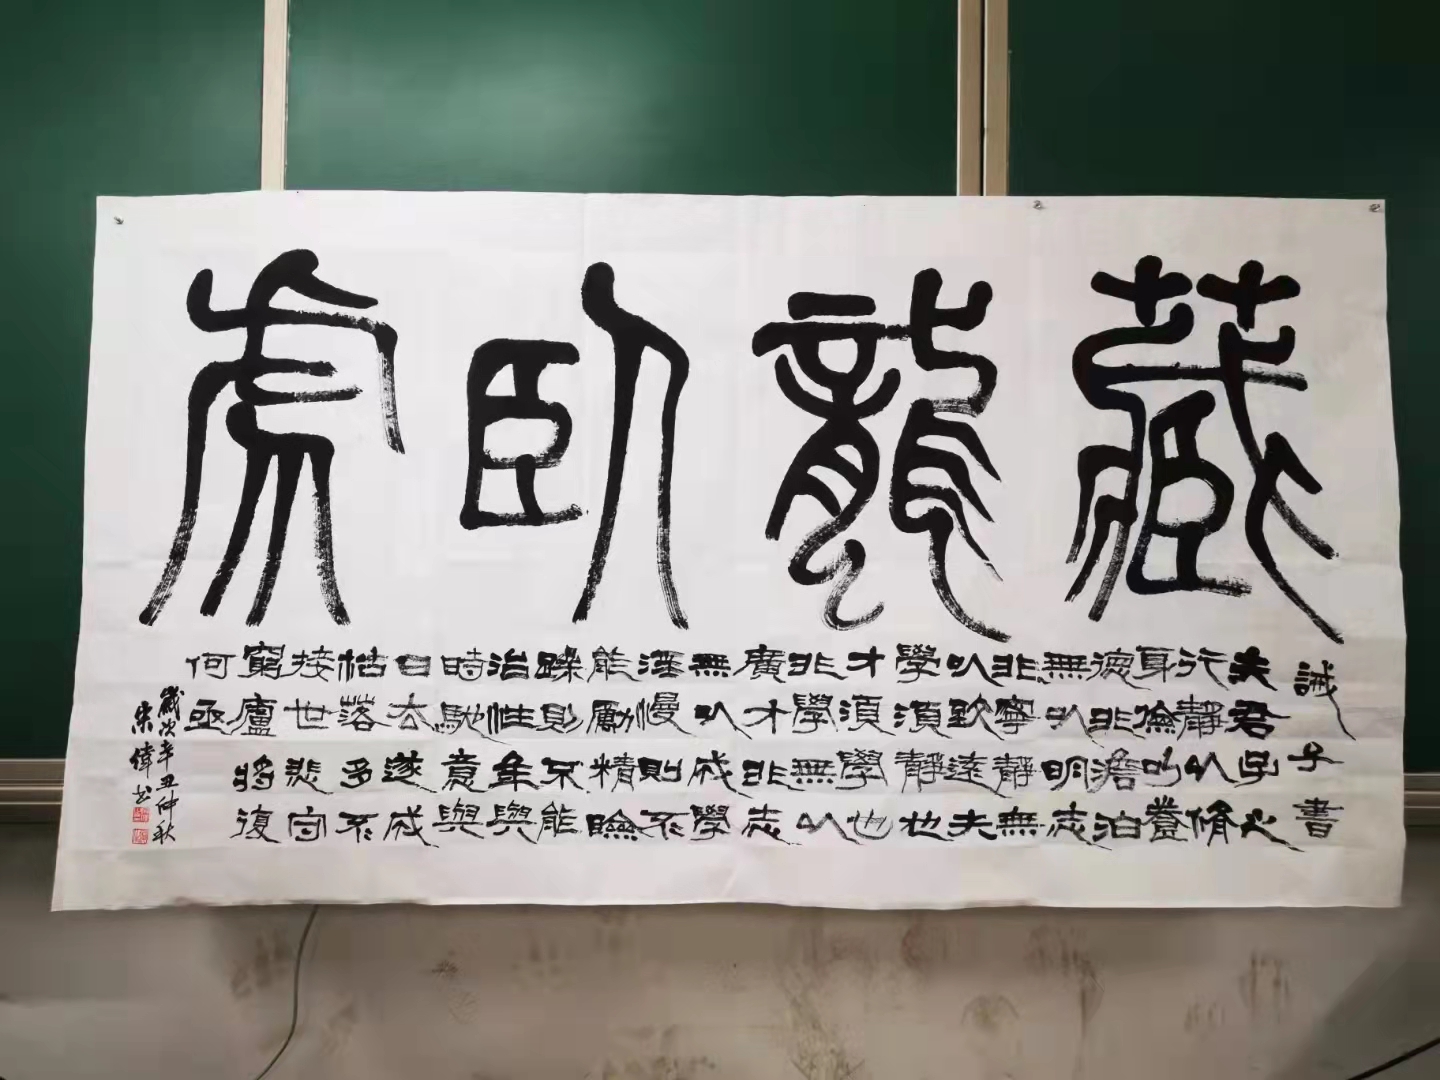 藏龍臥虎
誡子書
夫君子之
行靜以脩
身儉以養
德非澹泊
無以明志
非寧靜無
以致遠夫
學須靜也
才須學也
非學無以
廣才非志
無以成學
淫慢則不
能勵精險
躁則不能
治性年與
時馳意與
日去遂成
枯落多不
接世悲守
窮廬將復
何及
歲次辛丑仲秋
宋偉书